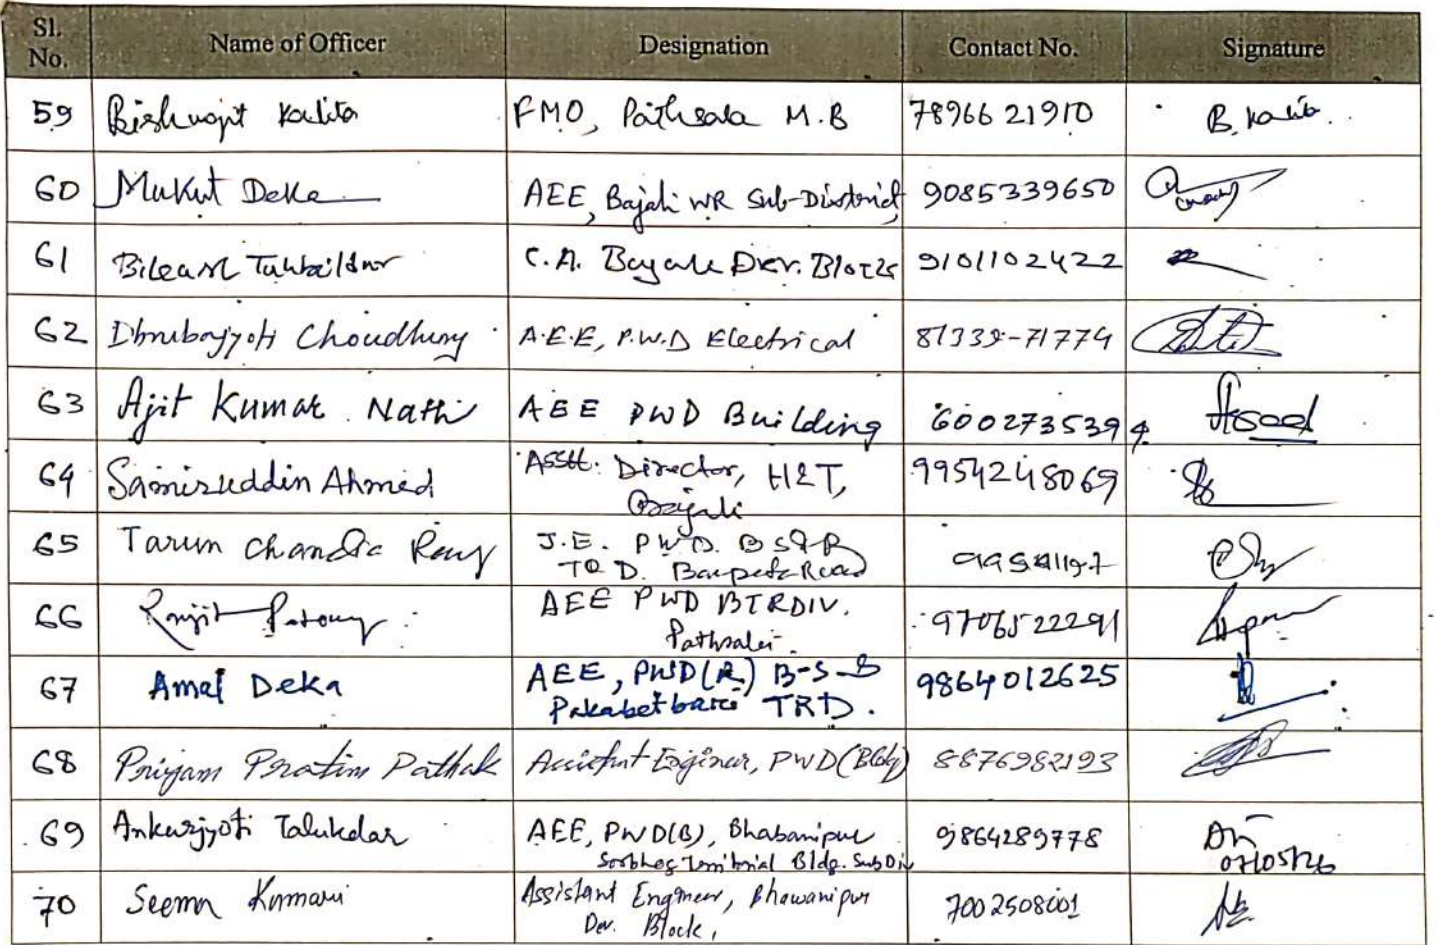 Sl. No. Name of Officer Designation Contact No. Signature
59 Bishwajit Kalita FMO, Pathsala M.B 78966 21910 B. Kalita
60 Mukut Deka AEE, Bajali WR Sub-District 9085339650
61 C.A. Dev. Block 9101102422
62 Dhrubajyoti Choudhury A.E.E, P.W.D Electrical
63 Ajit Kumar Nath AEE PWD Building 6002735394
64 Samiruddin Ahmed Asstt. Director, H&T,
Bajali 9954248069
65 Tarun Chandra Roy J.E. PWD.
T D. Barpeta Road
66 Ranjit AEE PWD BTRDIV.
Pathsala 9706522291
67 Amal Deka AEE, PWD(R) B-S-D
Pakabetbari TRD. 9864012625
68 Priyam Pratim Pathak Assistant Engineer, PWD(Bldg) 8876982193
69 Ankurjyoti Talukdar AEE, PWD(B), Bhabanipur
Sorbhog Territorial Bldg. Sub Div 9864289778
70 Seema Kumari Assistant Engineer, Bhawanipur
Dev. Block, 7002508001